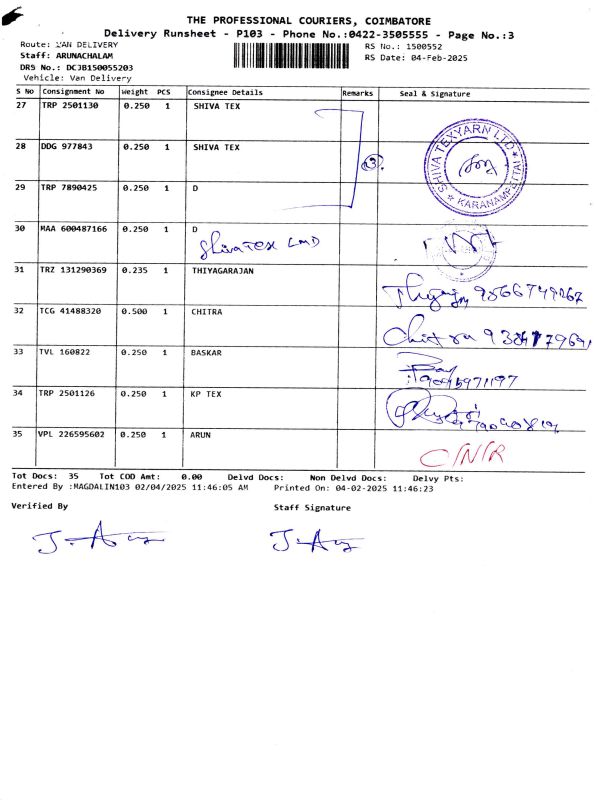 THE PROFESSIONAL COURIERS, COIMBATORE
Delivery Runsheet - P103 - Phone No.:0422-3505555 - Page No.:3
Route: VAN DELIVERY RS No.: 1500552
Staff: ARUNACHALAM RS Date: 04-Feb-2025
DRS No.: DCJB150055203
Vehicle: Van Delivery
S No Consignment No Weight PCS Consignee Details Remarks Seal & Signature
27 TRP 2501130 0.250 1 SHIVA TEX
28 DDG 977843 0.250 1 SHIVA TEX
SHIVA TEXYARN LTD
KARANAMPETTAI
29 TRP 7890425 0.250 1 D
30 MAA 600487166 0.250 1 D
Shiva Tex LMD
31 TRZ 131290369 0.235 1 THIYAGARAJAN
32 TCG 41488320 0.500 1 CHITRA
Chitra
33 TVL 160822 0.250 1 BASKAR
34 TRP 2501126 0.250 1 KP TEX
35 VPL 226595602 0.250 1 ARUN
C/N/R
Tot Docs: 35 Tot COD Amt: 0.00 Delvd Docs: Non Delvd Docs: Delvy Pts:
Entered By :MAGDALIN103 02/04/2025 11:46:05 AM Printed On: 04-02-2025 11:46:23
Verified By Staff Signature